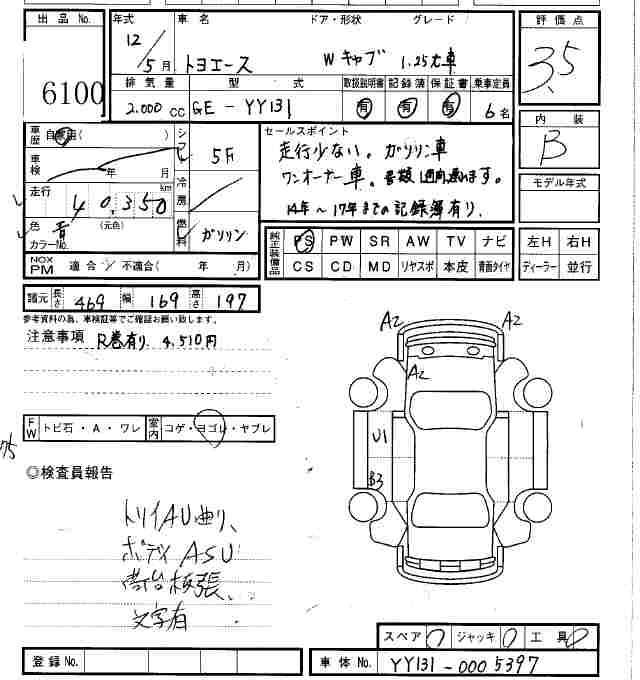 出品No. 6100
年式 車名 ドア・形状 グレード
12/5月 トヨエース Wキャブ 1.25t車
評価点 3.5
排気量 型式 取扱説明書 記録簿 保証書 乗車定員
2.000cc GE-YY131 有 有 有 6名
内装 B
車歴 自家用( )
シフト 5F
セールスポイント
走行少ない。ガソリン車
ワンオーナー車。書類1週間遅れます。
14年～17年までの記録簿有り.
車検 年 月
冷房
モデル年式
走行 40,350 km
色 青 (元色)
カラーNo.
燃料 ガソリン
純正装備品 PS PW SR AW TV ナビ 左H 右H
CS CD MD リヤスポ 本皮 背面タイヤ ディーラー 並行
NOX PM 適合 / 不適合( 年 月)
諸元 長さ 469 幅 169 高さ 197
参考資料の為、車検証等でご確認お願い致します。
注意事項 R巻有り 4,510円
A2 A2
A2
U1
B3
FW トビ石・A・ワレ 室内 コゲ・ヨゴレ・ヤブレ
◎検査員報告
トリイAU曲り、
ボディASU
荷台板張、
文字有
スペア ジャッキ 工具
登録No.
車体No. YY131-0005397